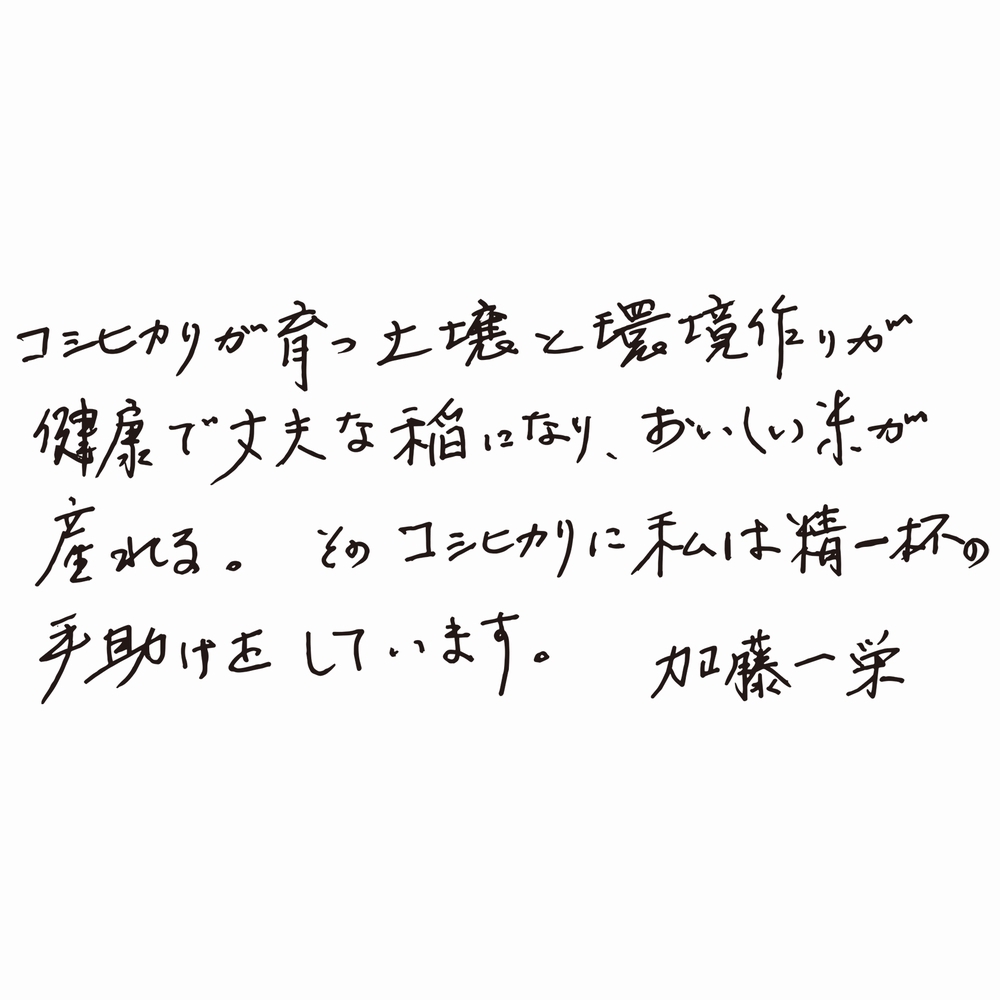 コシヒカリが育つ土壌と環境作りが
健康で丈夫な稲になり、おいしい米が
産れる。 そのコシヒカリに私は精一杯の
手助けをしています。 加藤一栄